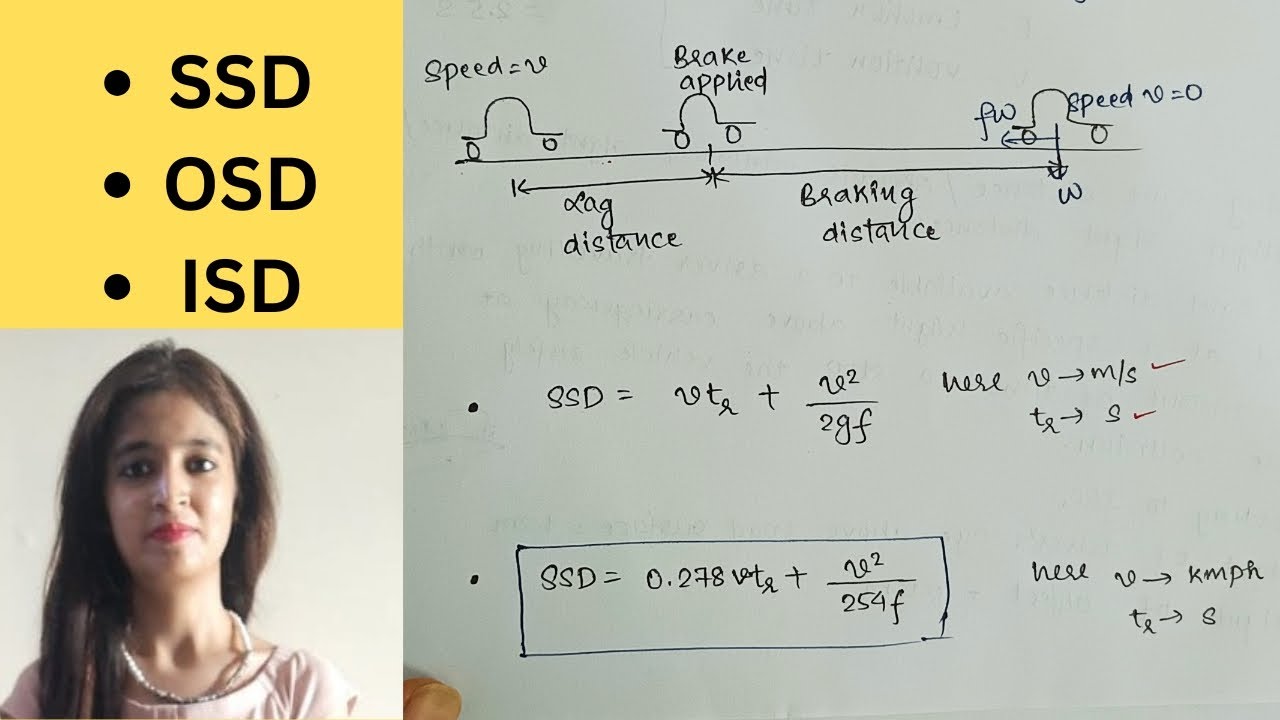 • SSD
• OSD
• ISD
= 2.5 s
Speed = v
Brake
applied
fw
Speed v = 0
w
Lag
distance
Braking
distance
• SSD = vtᵣ + v²/2gf
here v → m/s ✓
tᵣ → s ✓
• SSD = 0.278 vtᵣ + v²/254f
here v → kmph
tᵣ → s